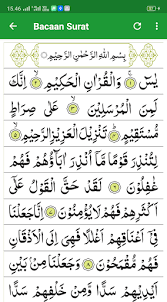 15.46
Bacaan Surat
بِسْمِ اللّٰهِ الرَّحْمٰنِ الرَّحِيْمِ
يٰسۤ ۝١ وَالْقُرْاٰنِ الْحَكِيْمِ ۝٢ اِنَّكَ
لَمِنَ الْمُرْسَلِيْنَ ۝٣ عَلٰى صِرَاطٍ
مُّسْتَقِيْمٍ ۝٤ تَنْزِيْلَ الْعَزِيْزِ الرَّحِيْمِ ۝٥
لِتُنْذِرَ قَوْمًا مَّآ اُنْذِرَ اٰبَاۤؤُهُمْ فَهُمْ
غٰفِلُوْنَ ۝٦ لَقَدْ حَقَّ الْقَوْلُ عَلٰٓى
اَكْثَرِهِمْ فَهُمْ لَا يُؤْمِنُوْنَ ۝٧ اِنَّا جَعَلْنَا
فِيْٓ اَعْنَاقِهِمْ اَغْلٰلًا فَهِيَ اِلَى الْاَذْقَانِ
فَهُمْ مُّقْمَحُوْنَ ۝٨ وَجَعَلْنَا مِنْۢ بَيْنِ